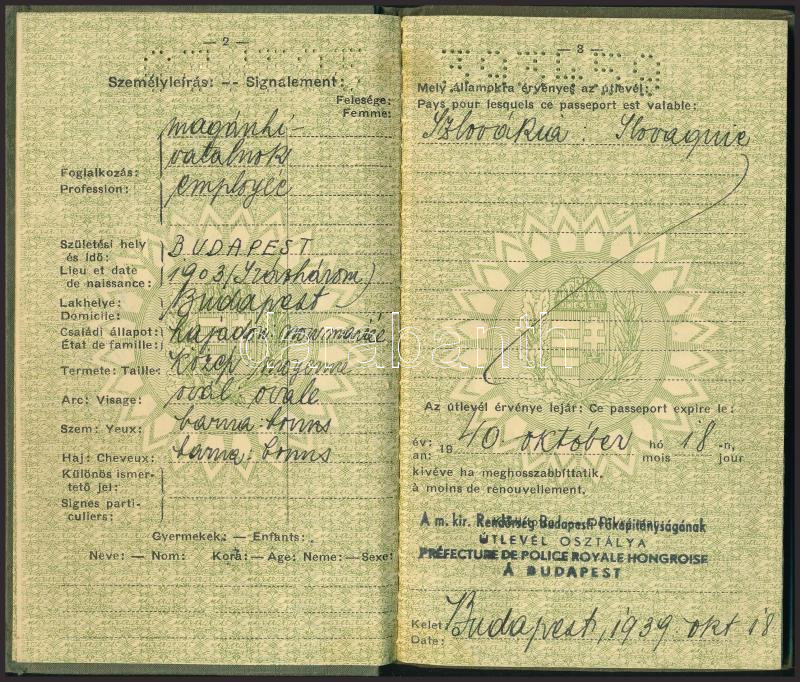 — 2 —
Személyleírás: -- Signalement:
Felesége:
Femme:
magánhi-
vatalnok
Foglalkozás:
Profession:
employée
Születési hely
és idő:
Lieu et date
de naissance:
BUDAPEST
1903 (Százhárom)
Lakhelye:
Domicile:
Budapest
Családi állapot:
État de famille:
hajadon: non mariée
Termete: Taille:
közép moyenne
Arc: Visage:
ovál: ovale
Szem: Yeux:
barna: bruns
Haj: Cheveux:
barna: bruns
Különös ismer-
tető jel:
Signes parti-
culiers:
Gyermekek: — Enfants:
Neve: — Nom: Kora: — Age: Neme: — Sexe:
— 3 —
Mely államokra érvényes az útlevél:
Pays pour lesquels ce passeport est valable:
Szlovákia: Slovaquie
Az útlevél érvénye lejár: Ce passeport expire le:
év: 1940 október hó 18 -n,
an: mois jour
kivéve ha meghosszabbíttatik.
à moins de renouvellement.
A m. kir. Rendőrség Budapesti Főkapitányságának
ÚTLEVÉL OSZTÁLYA
PRÉFECTURE DE POLICE ROYALE HONGROISE
À BUDAPEST
Kelet: Budapest, 1939. okt 18
Date:
darabanth